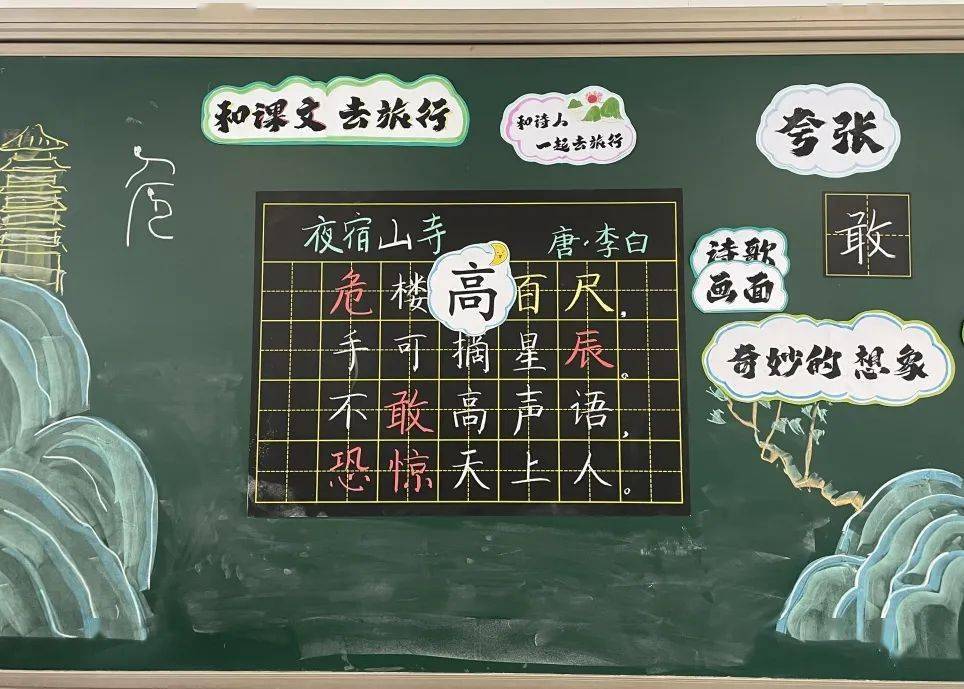 和课文去旅行
和诗人
一起去旅行
夸张
危
敢
夜宿山寺 唐·李白
危楼高百尺，
手可摘星辰。
不敢高声语，
恐惊天上人。
诗歌
画面
奇妙的想象